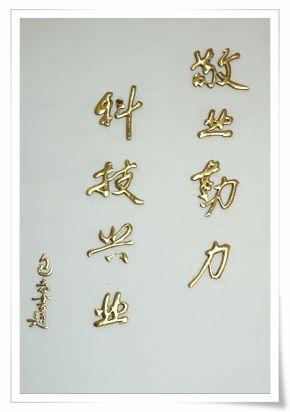 敬业勤力
科技兴业